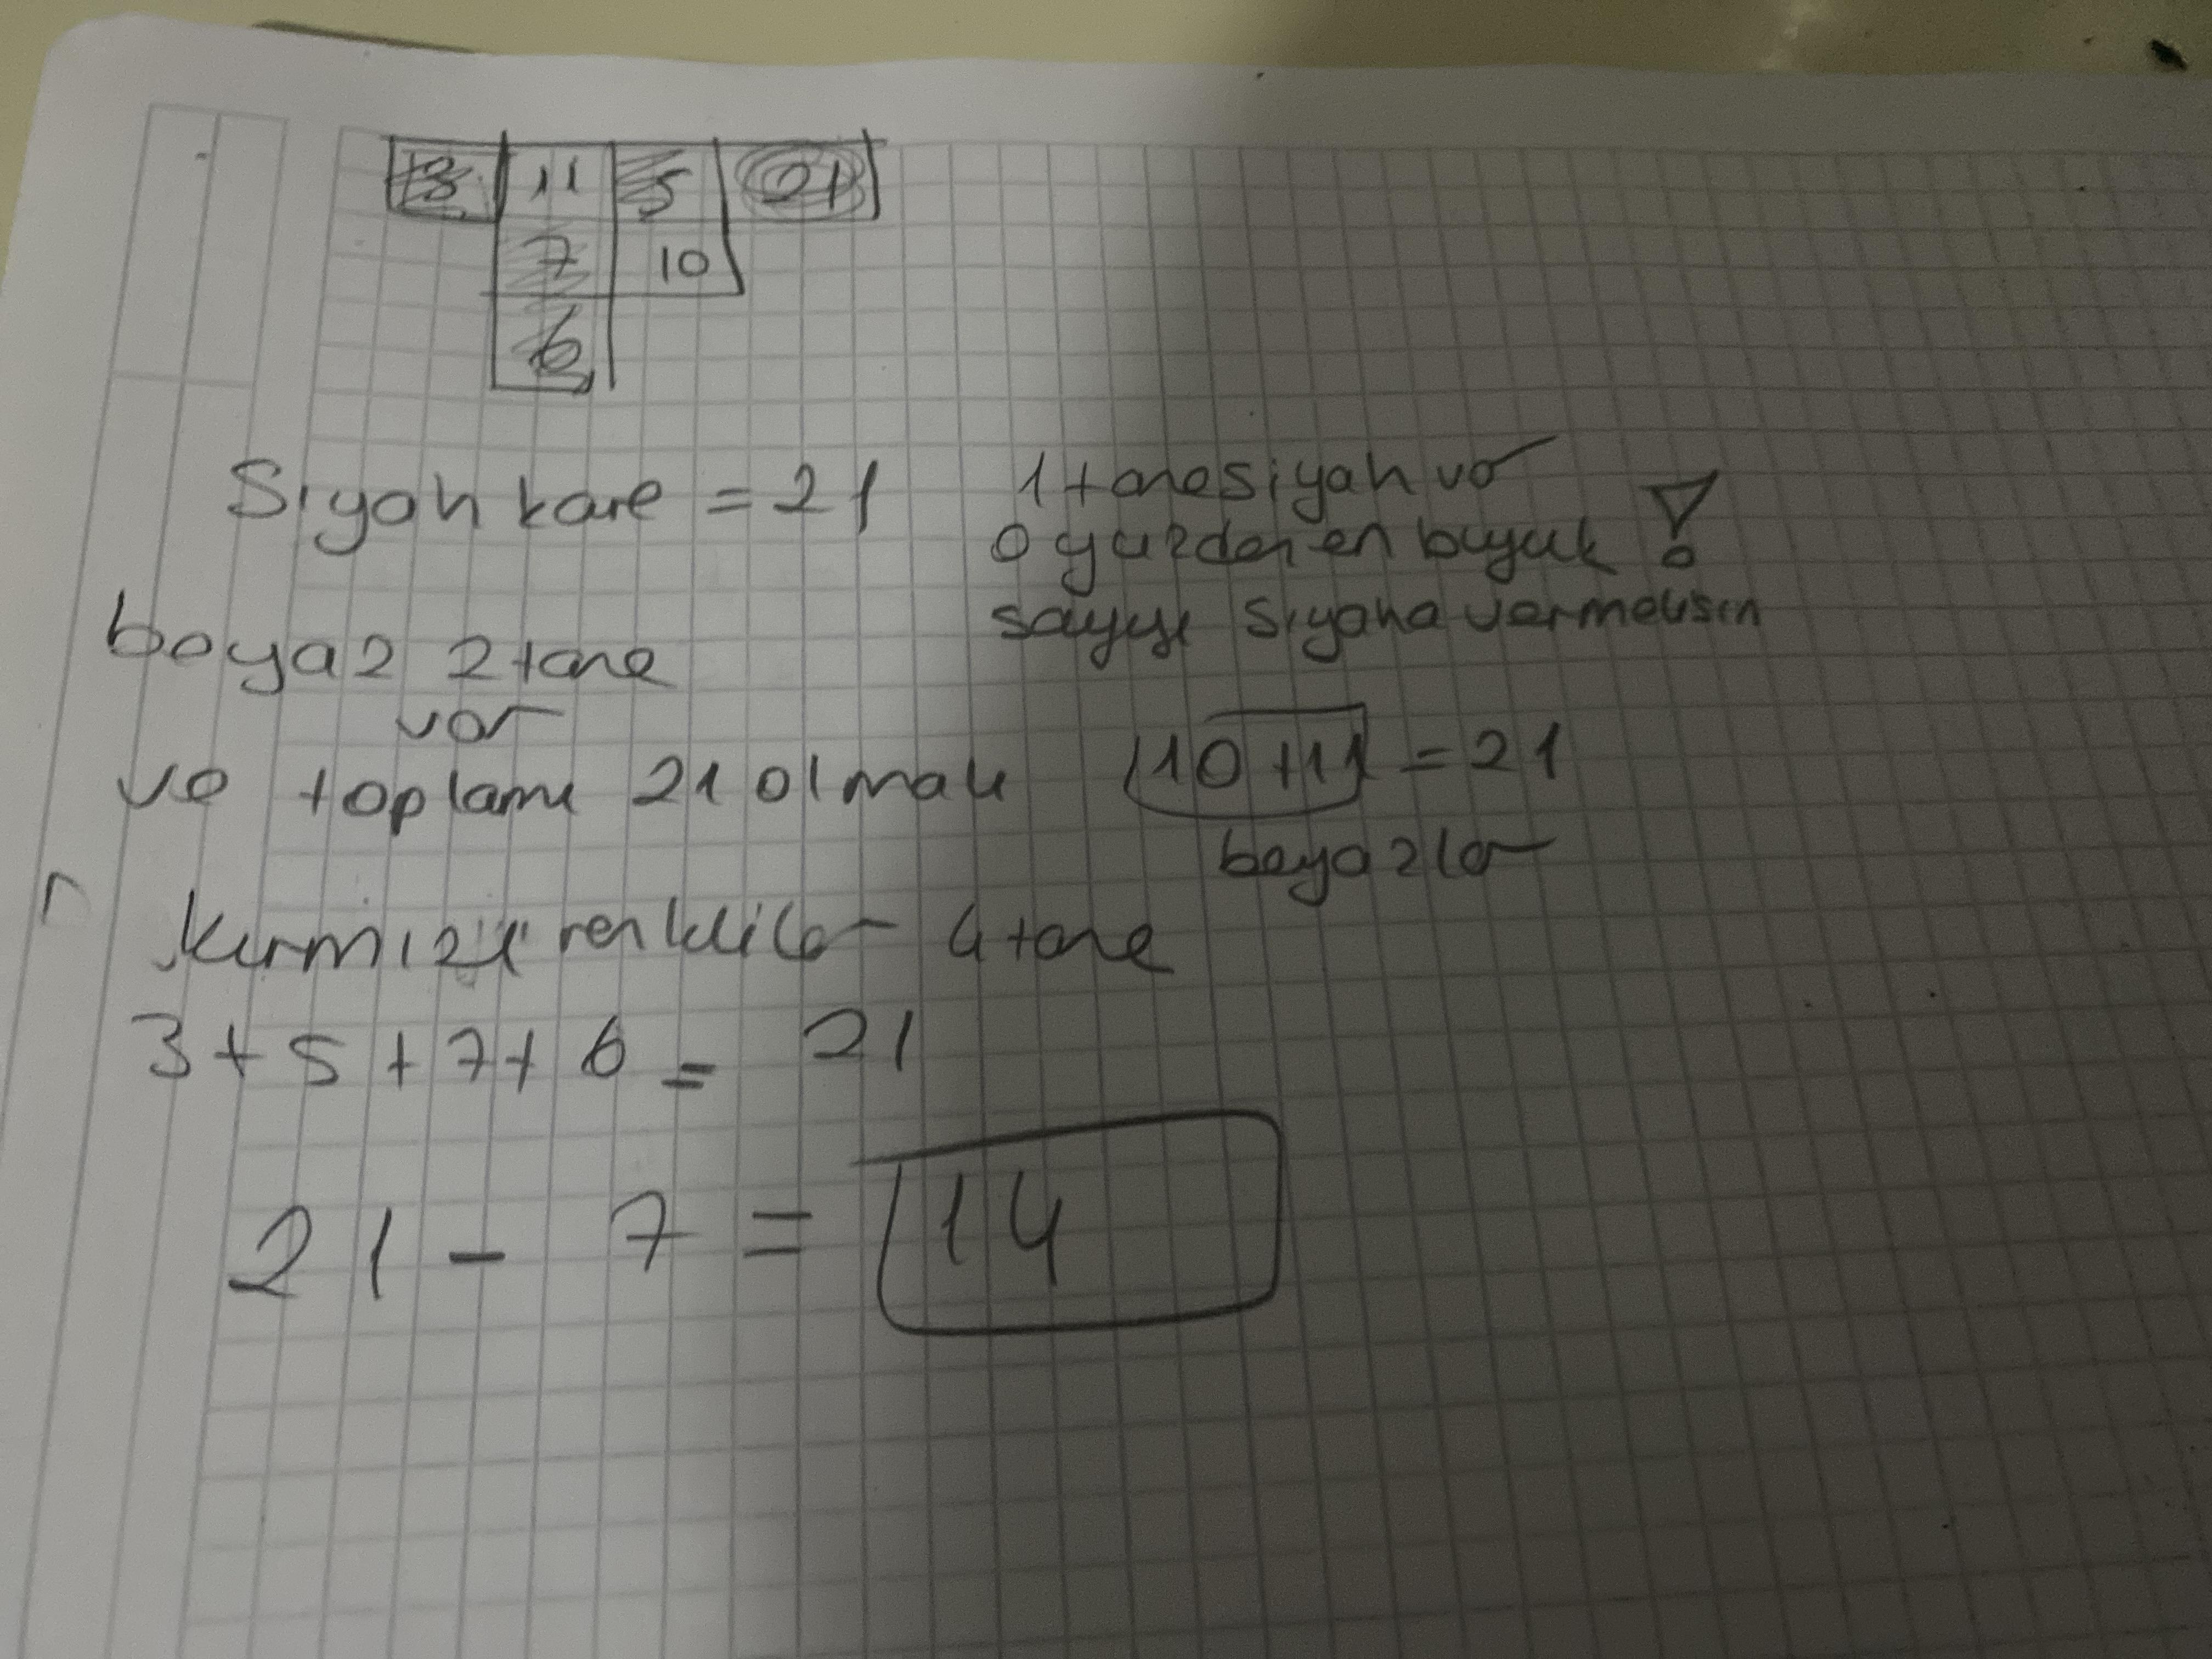 3 11 5 21
7 10
6
Siyah kare = 21
1 tane siyah var
o yüzden en büyük !
sayıyı siyaha vermelisin
beyaz 2 tane
var
ve toplamı 21 olmalı
10 + 11 = 21
beyazlar
kırmızı renkliler 4 tane
3 + 5 + 7 + 6 = 21
21 - 7 = 14